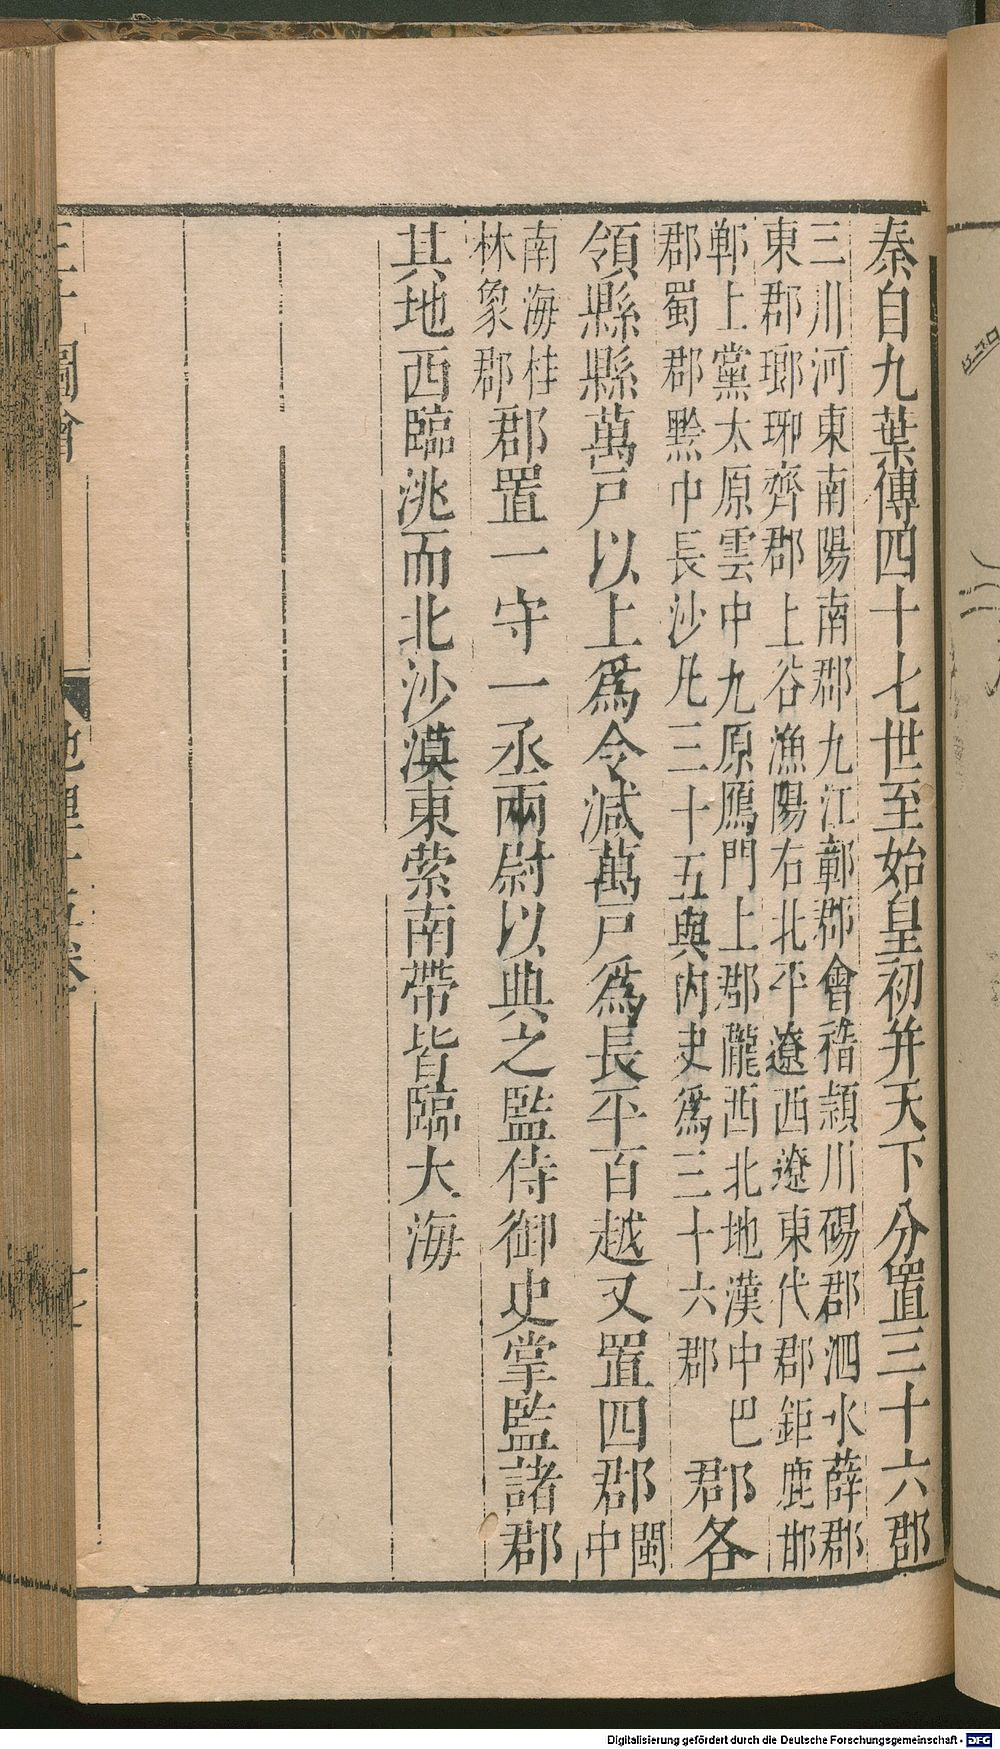 秦自九葉傳四十七世至始皇初并天下分置三十六郡
三川河東南陽南郡九江鄣郡會稽潁川碭郡泗水薛郡
東郡瑯琊齊郡上谷漁陽右北平遼西遼東代郡鉅鹿邯
鄲上黨太原雲中九原鴈門上郡隴西北地漢中巴
郡蜀郡黔中長沙凡三十五與内史爲三十六郡
郡各
領縣縣萬戸以上爲令減萬戸爲長平百越又置四郡
閩
中
南海桂
林象郡
郡置一守一丞兩尉以典之監侍御史掌監諸郡
其地西臨洮而北沙漠東縈南帶皆臨大海
圖會
地理十三卷
Digitalisierung gefördert durch die Deutsche Forschungsgemeinschaft - DFG